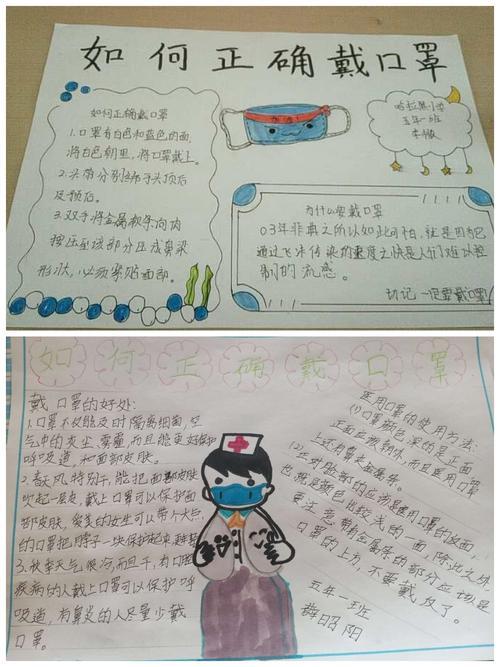 如何正确戴口罩
如何正确戴口罩
1.口罩有白色和蓝色的面,
将白色朝里,将口罩戴上。
2.头带分别绑于头顶后
及颈后。
3.双手将金属软条向内
按压至该部分压成鼻梁
形状,必须紧贴面部。
五年一班
为什么要戴口罩
03年非典之所以如此可怕,就是因为它
通过飞沫传染的速度之快是人们难以控
制的流感。
切记一定要戴口罩!
如何正确戴口罩
戴口罩的好处:
1.口罩不仅能及时隔离细菌,空
气中的灰尘雾霾,而且能更好保护
呼吸道,和面部皮肤。
2.春天风特别干,能把面部皮肤
吹起一层皮,戴上口罩可以保护面
部皮肤,爱美的女生可以带个大点
的口罩把脖子一块保护起来
3.秋季天气很冷,而且干,有口腔
疾病的人戴上口罩可以保护呼
吸道,有鼻炎的人尽量少戴
口罩。
医用口罩的使用方法:
(1)口罩颜色深的是正面
正面应该朝外,而且医用口罩
上还有鼻夹金属条。
(2)正对脸部的应该是医用口罩的反面,
也就是颜色比较浅的一面,除此之外,
要注意带有金属条的部分应该是
口罩的上方,不要戴反了。
五年一班